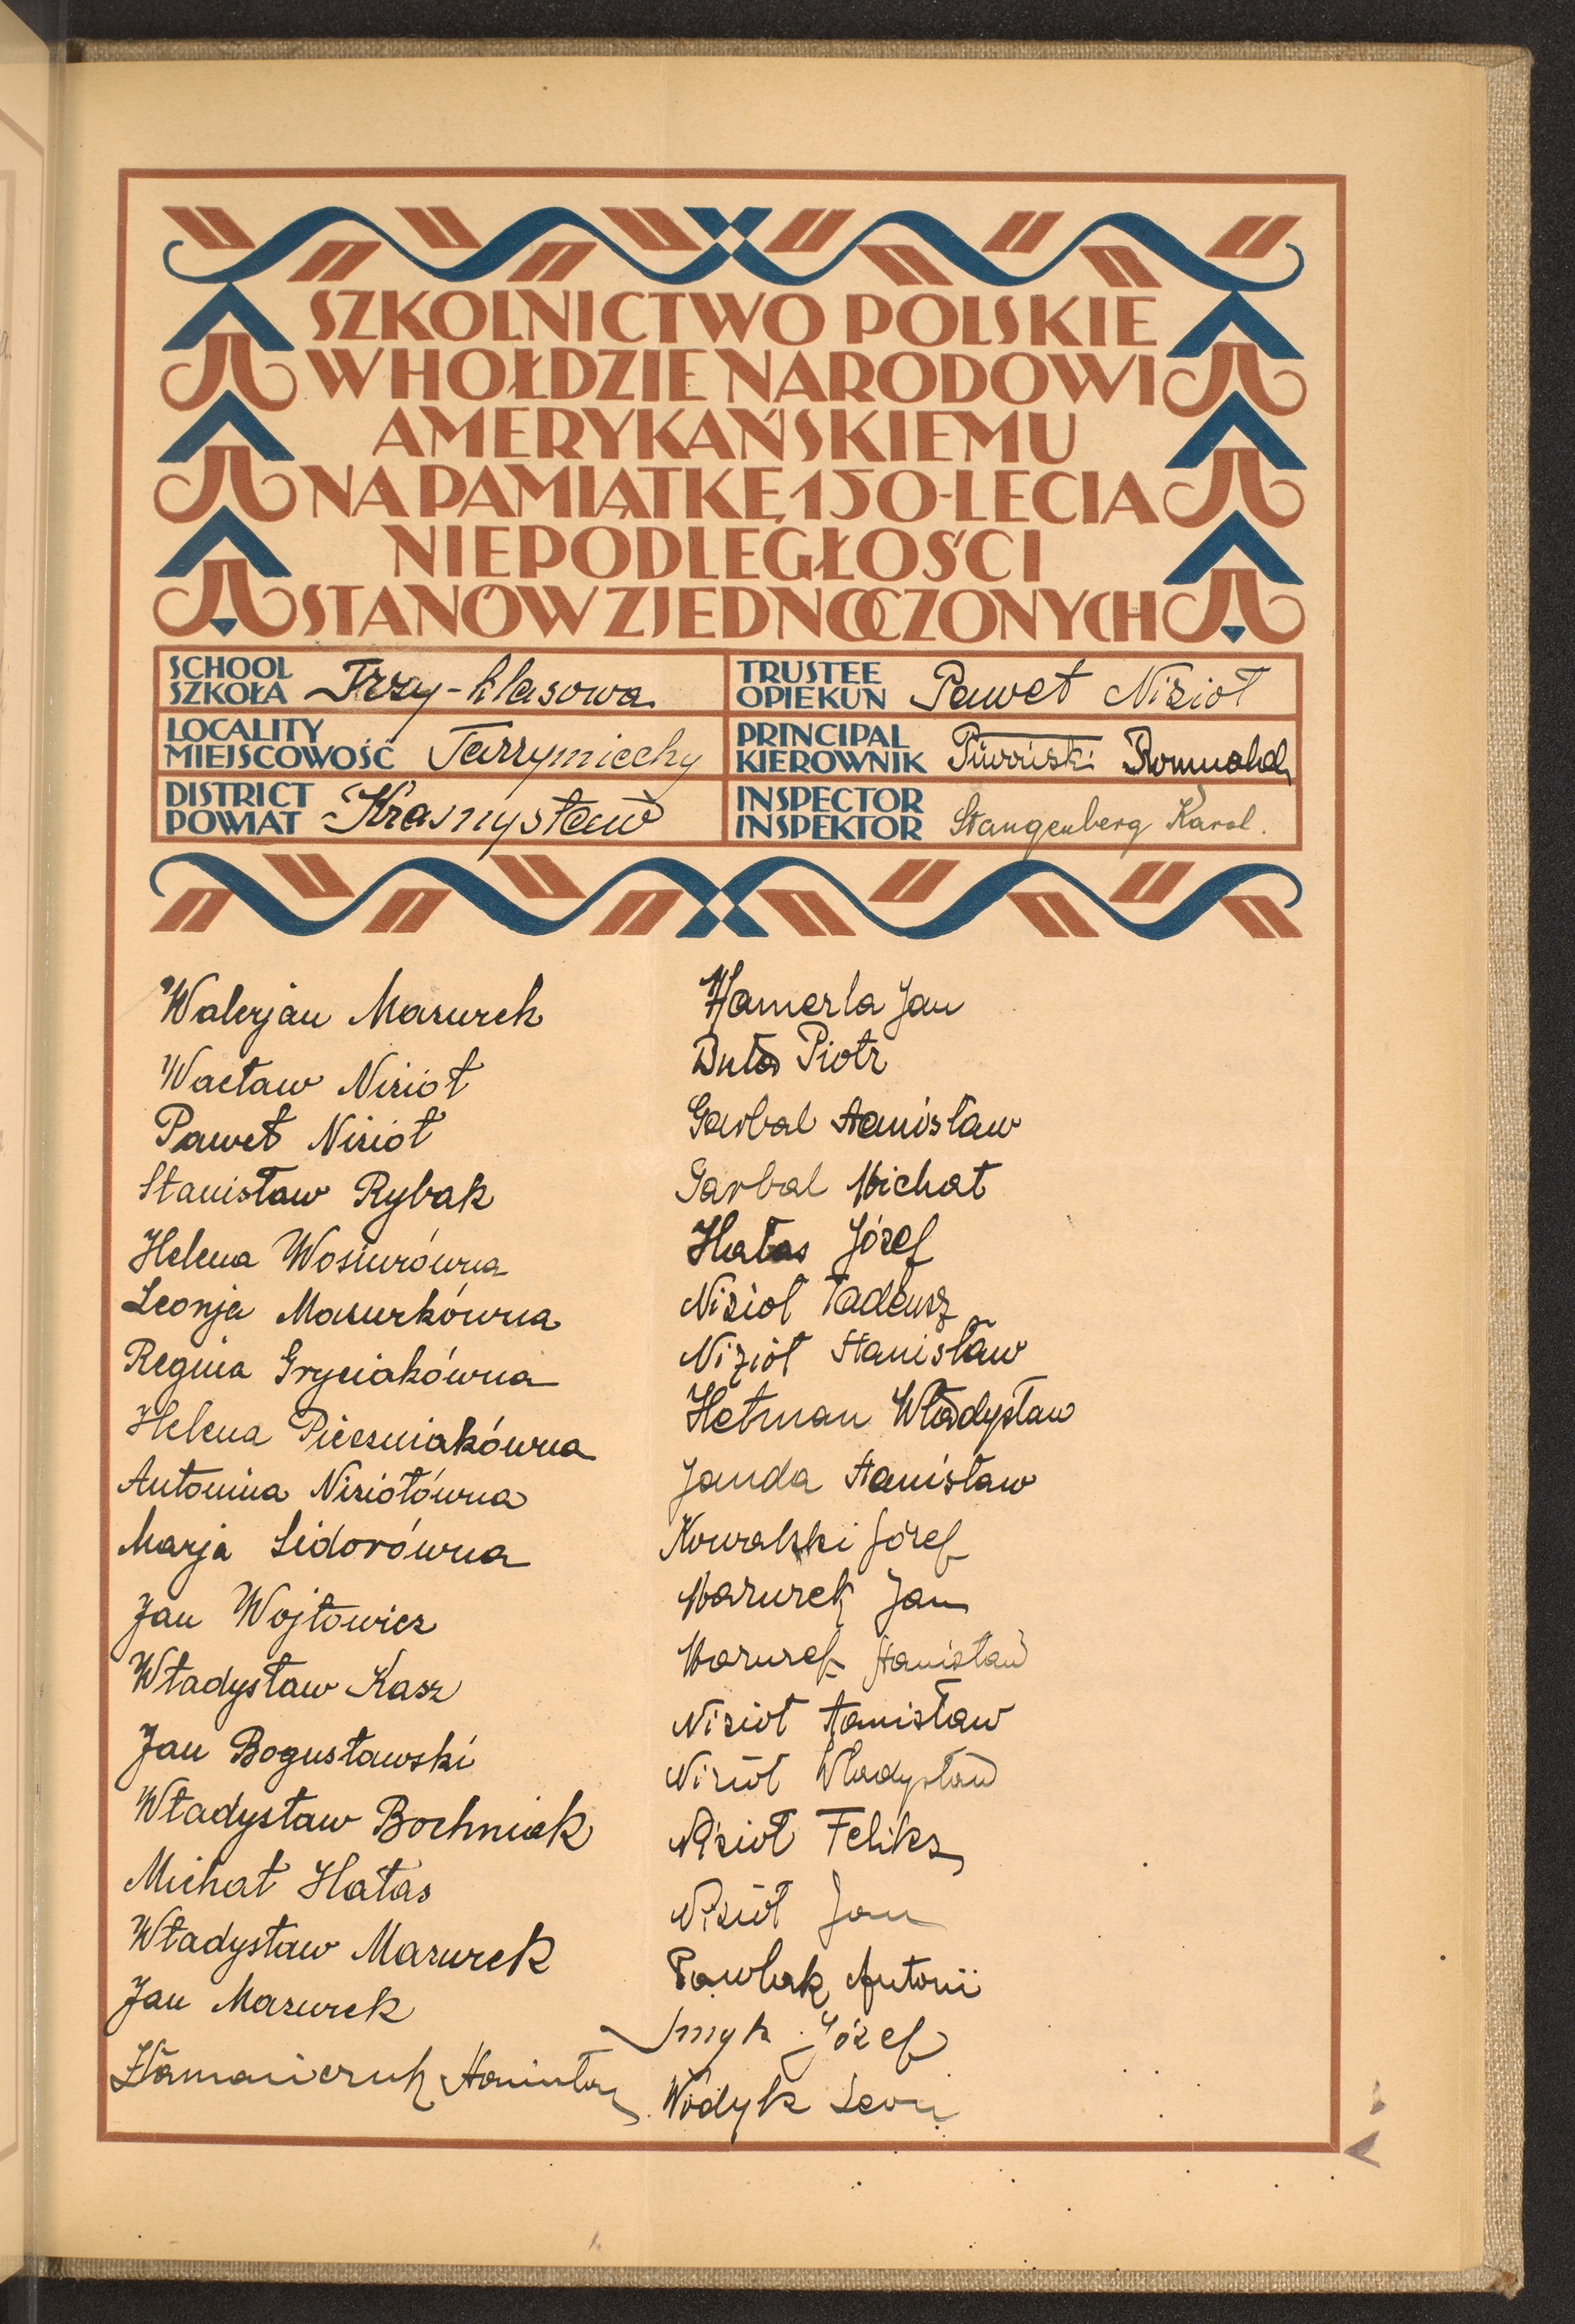 SZKOLNICTWO POLSKIE
W HOŁDZIE NARODOWI
AMERYKAŃSKIEMU
NA PAMIĄTKĘ 150-LECIA
NIEPODLEGŁOŚCI
STANÓW ZJEDNOCZONYCH
SCHOOL
SZKOŁA Trzy-klasowa
TRUSTEE
OPIEKUN Paweł Nizioł
LOCALITY
MIEJSCOWOŚĆ Tarzymiechy
PRINCIPAL
KIEROWNIK Romuald
DISTRICT
POWIAT Krasnystaw
INSPECTOR
INSPEKTOR Stangenberg Karol.
Walerjan Mazurek
Wacław Nizioł
Paweł Nizioł
Stanisław Rybak
Helena Wosiurówna
Leonja Mazurkówna
Regina Gryciakówna
Helena Pieczniakówna
Antonina Niziołówna
Marja Sidorówna
Jan Wojtowicz
Władysław Kasz
Jan Bogusławski
Władysław Bochniak
Michał Hałas
Władysław Mazurek
Jan Mazurek
Hamerla Jan
Duła Piotr
Garbal Stanisław
Garbal Michał
Hałas Józef
Nizioł Tadeusz
Nizioł Stanisław
Hetman Władysław
Janda Stanisław
Kowalski Józef
Mazurek Jan
Mazurek Stanisław
Nizioł Stanisław
Nizioł Władysław
Nizioł Feliks
Nizioł Jan
Pawlak Antoni
Smyk Józef
Wodyk Leon